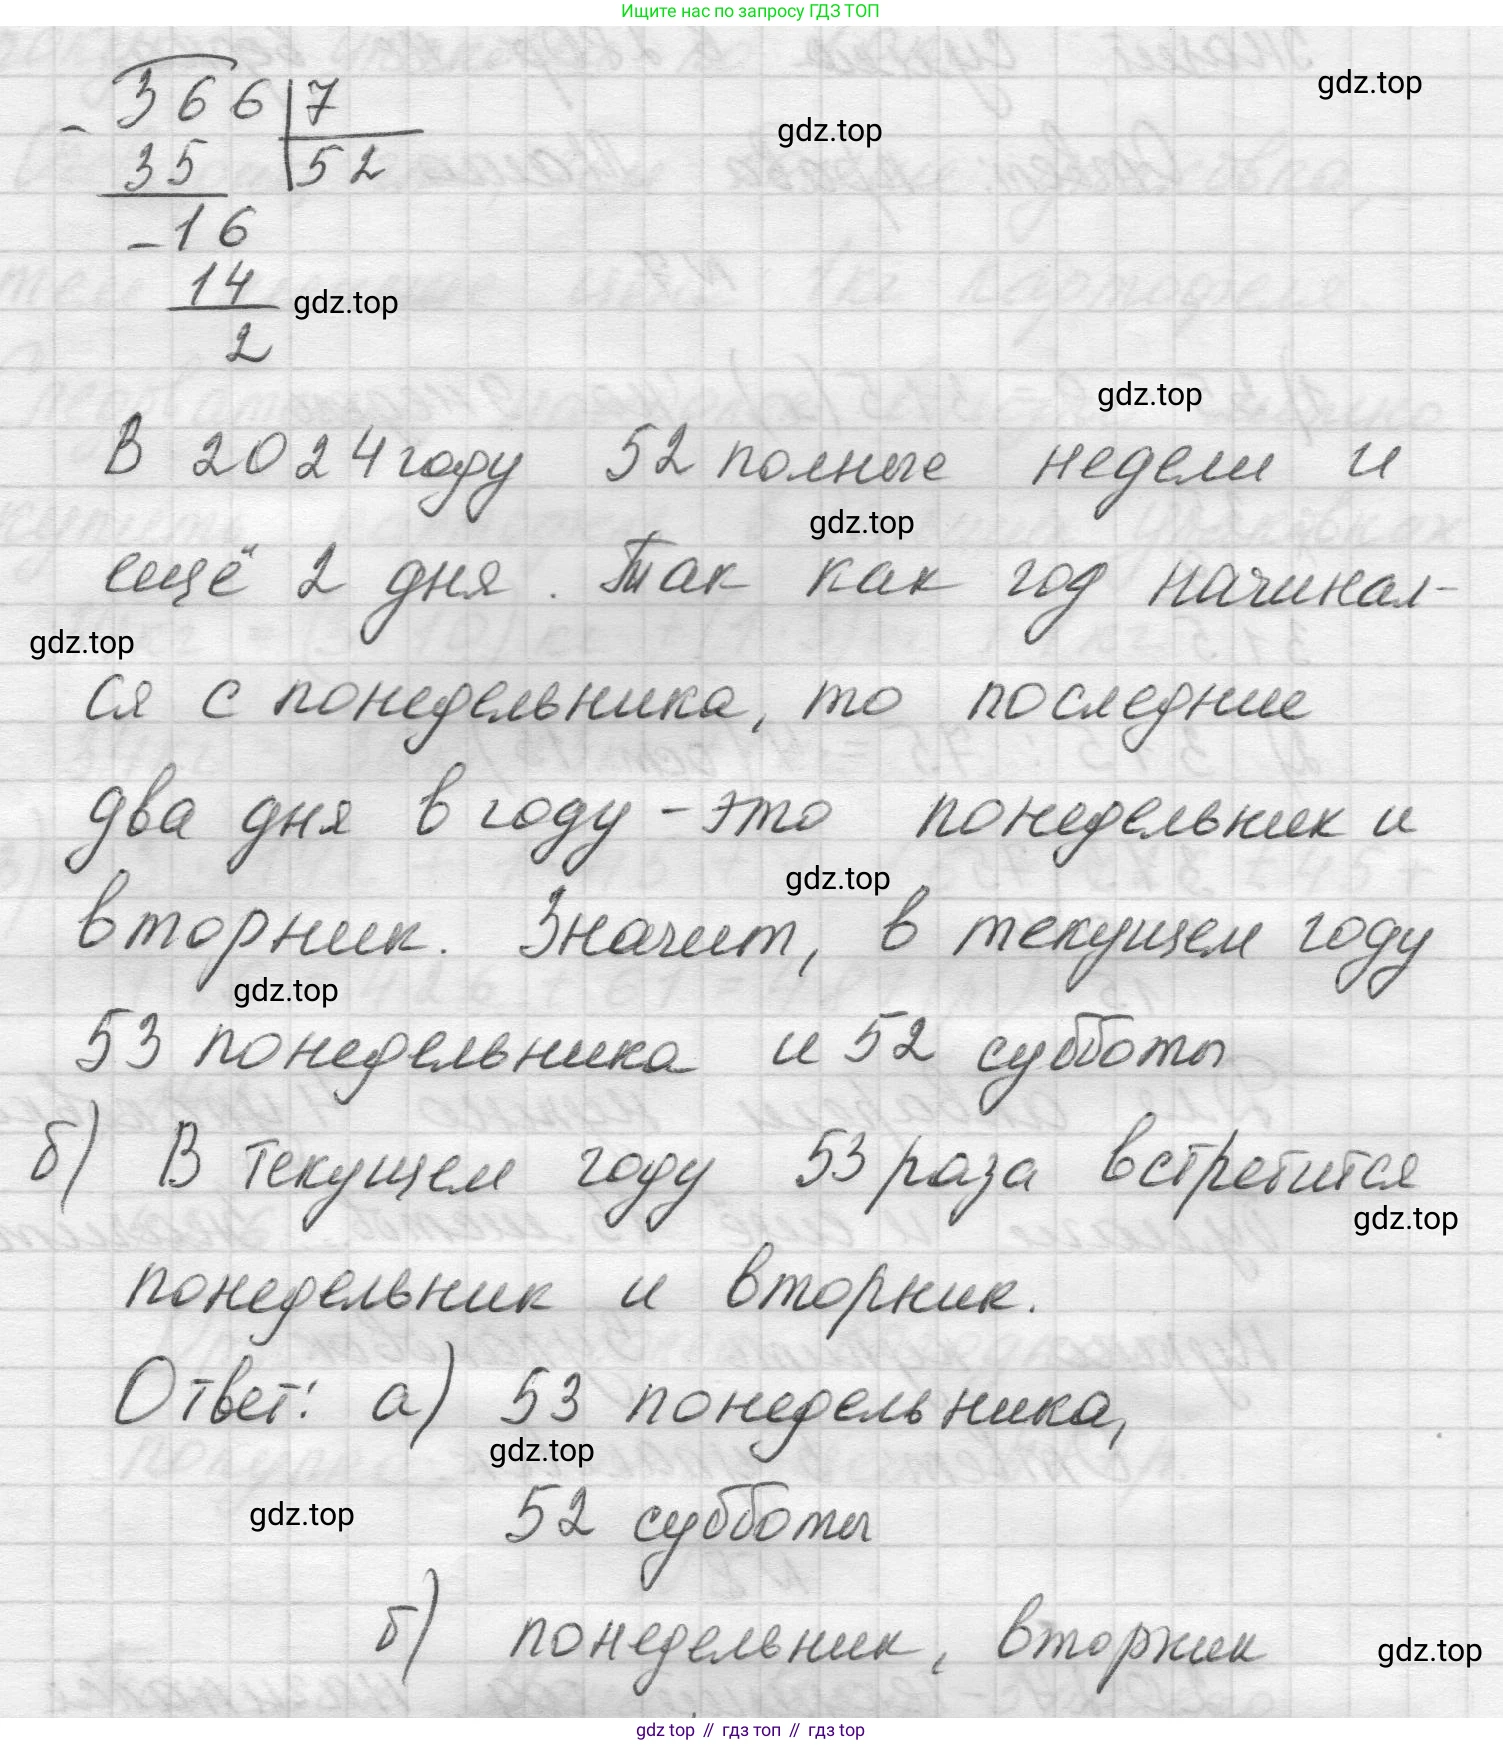 Ищите нас по запросу ГДЗ ТОП
gdz.top
366 7
gdz.top
- 35 52
-16
14
gdz.top
2
gdz.top
В 2024 году 52 полные недели и
gdz.top
ещё 2 дня. Так как год начинал-
gdz.top
ся с понедельника, то последние
два дня в году - это понедельник и
gdz.top
вторник. Значит, в текущем году
gdz.top
53 понедельника и 52 субботы
б) В текущем году 53 раза встретится
gdz.top
понедельник и вторник.
Ответ: а) 53 понедельника,
gdz.top
gdz.top
52 субботы
б) понедельник, вторник
gdz.top
gdz top // гдз топ // гдз top